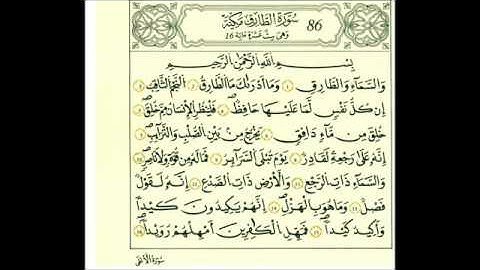 سُورَةُ الطَّارِقِ مَكِّيَّة 86
وَهِيَ سِتَّ عَشْرَةَ آيَة 16
بِسْمِ اللَّهِ الرَّحْمَٰنِ الرَّحِيمِ
وَالسَّمَاءِ وَالطَّارِقِ ١ وَمَا أَدْرَاكَ مَا الطَّارِقُ ٢ النَّجْمُ الثَّاقِبُ ٣
إِنْ كُلُّ نَفْسٍ لَمَّا عَلَيْهَا حَافِظٌ ٤ فَلْيَنْظُرِ الْإِنْسَانُ مِمَّ خُلِقَ ٥
خُلِقَ مِنْ مَاءٍ دَافِقٍ ٦ يَخْرُجُ مِنْ بَيْنِ الصُّلْبِ وَالتَّرَائِبِ ٧
إِنَّهُ عَلَىٰ رَجْعِهِ لَقَادِرٌ ٨ يَوْمَ تُبْلَى السَّرَائِرُ ٩ فَمَا لَهُ مِنْ قُوَّةٍ وَلَا نَاصِرٍ ١٠
وَالسَّمَاءِ ذَاتِ الرَّجْعِ ١١ وَالْأَرْضِ ذَاتِ الصَّدْعِ ١٢ إِنَّهُ لَقَوْلٌ
فَصْلٌ ١٣ وَمَا هُوَ بِالْهَزْلِ ١٤ إِنَّهُمْ يَكِيدُونَ كَيْدًا ١٥
وَأَكِيدُ كَيْدًا ١٦ فَمَهِّلِ الْكَافِرِينَ أَمْهِلْهُمْ رُوَيْدًا ١٧
سُورَةُ الْأَعْلَى